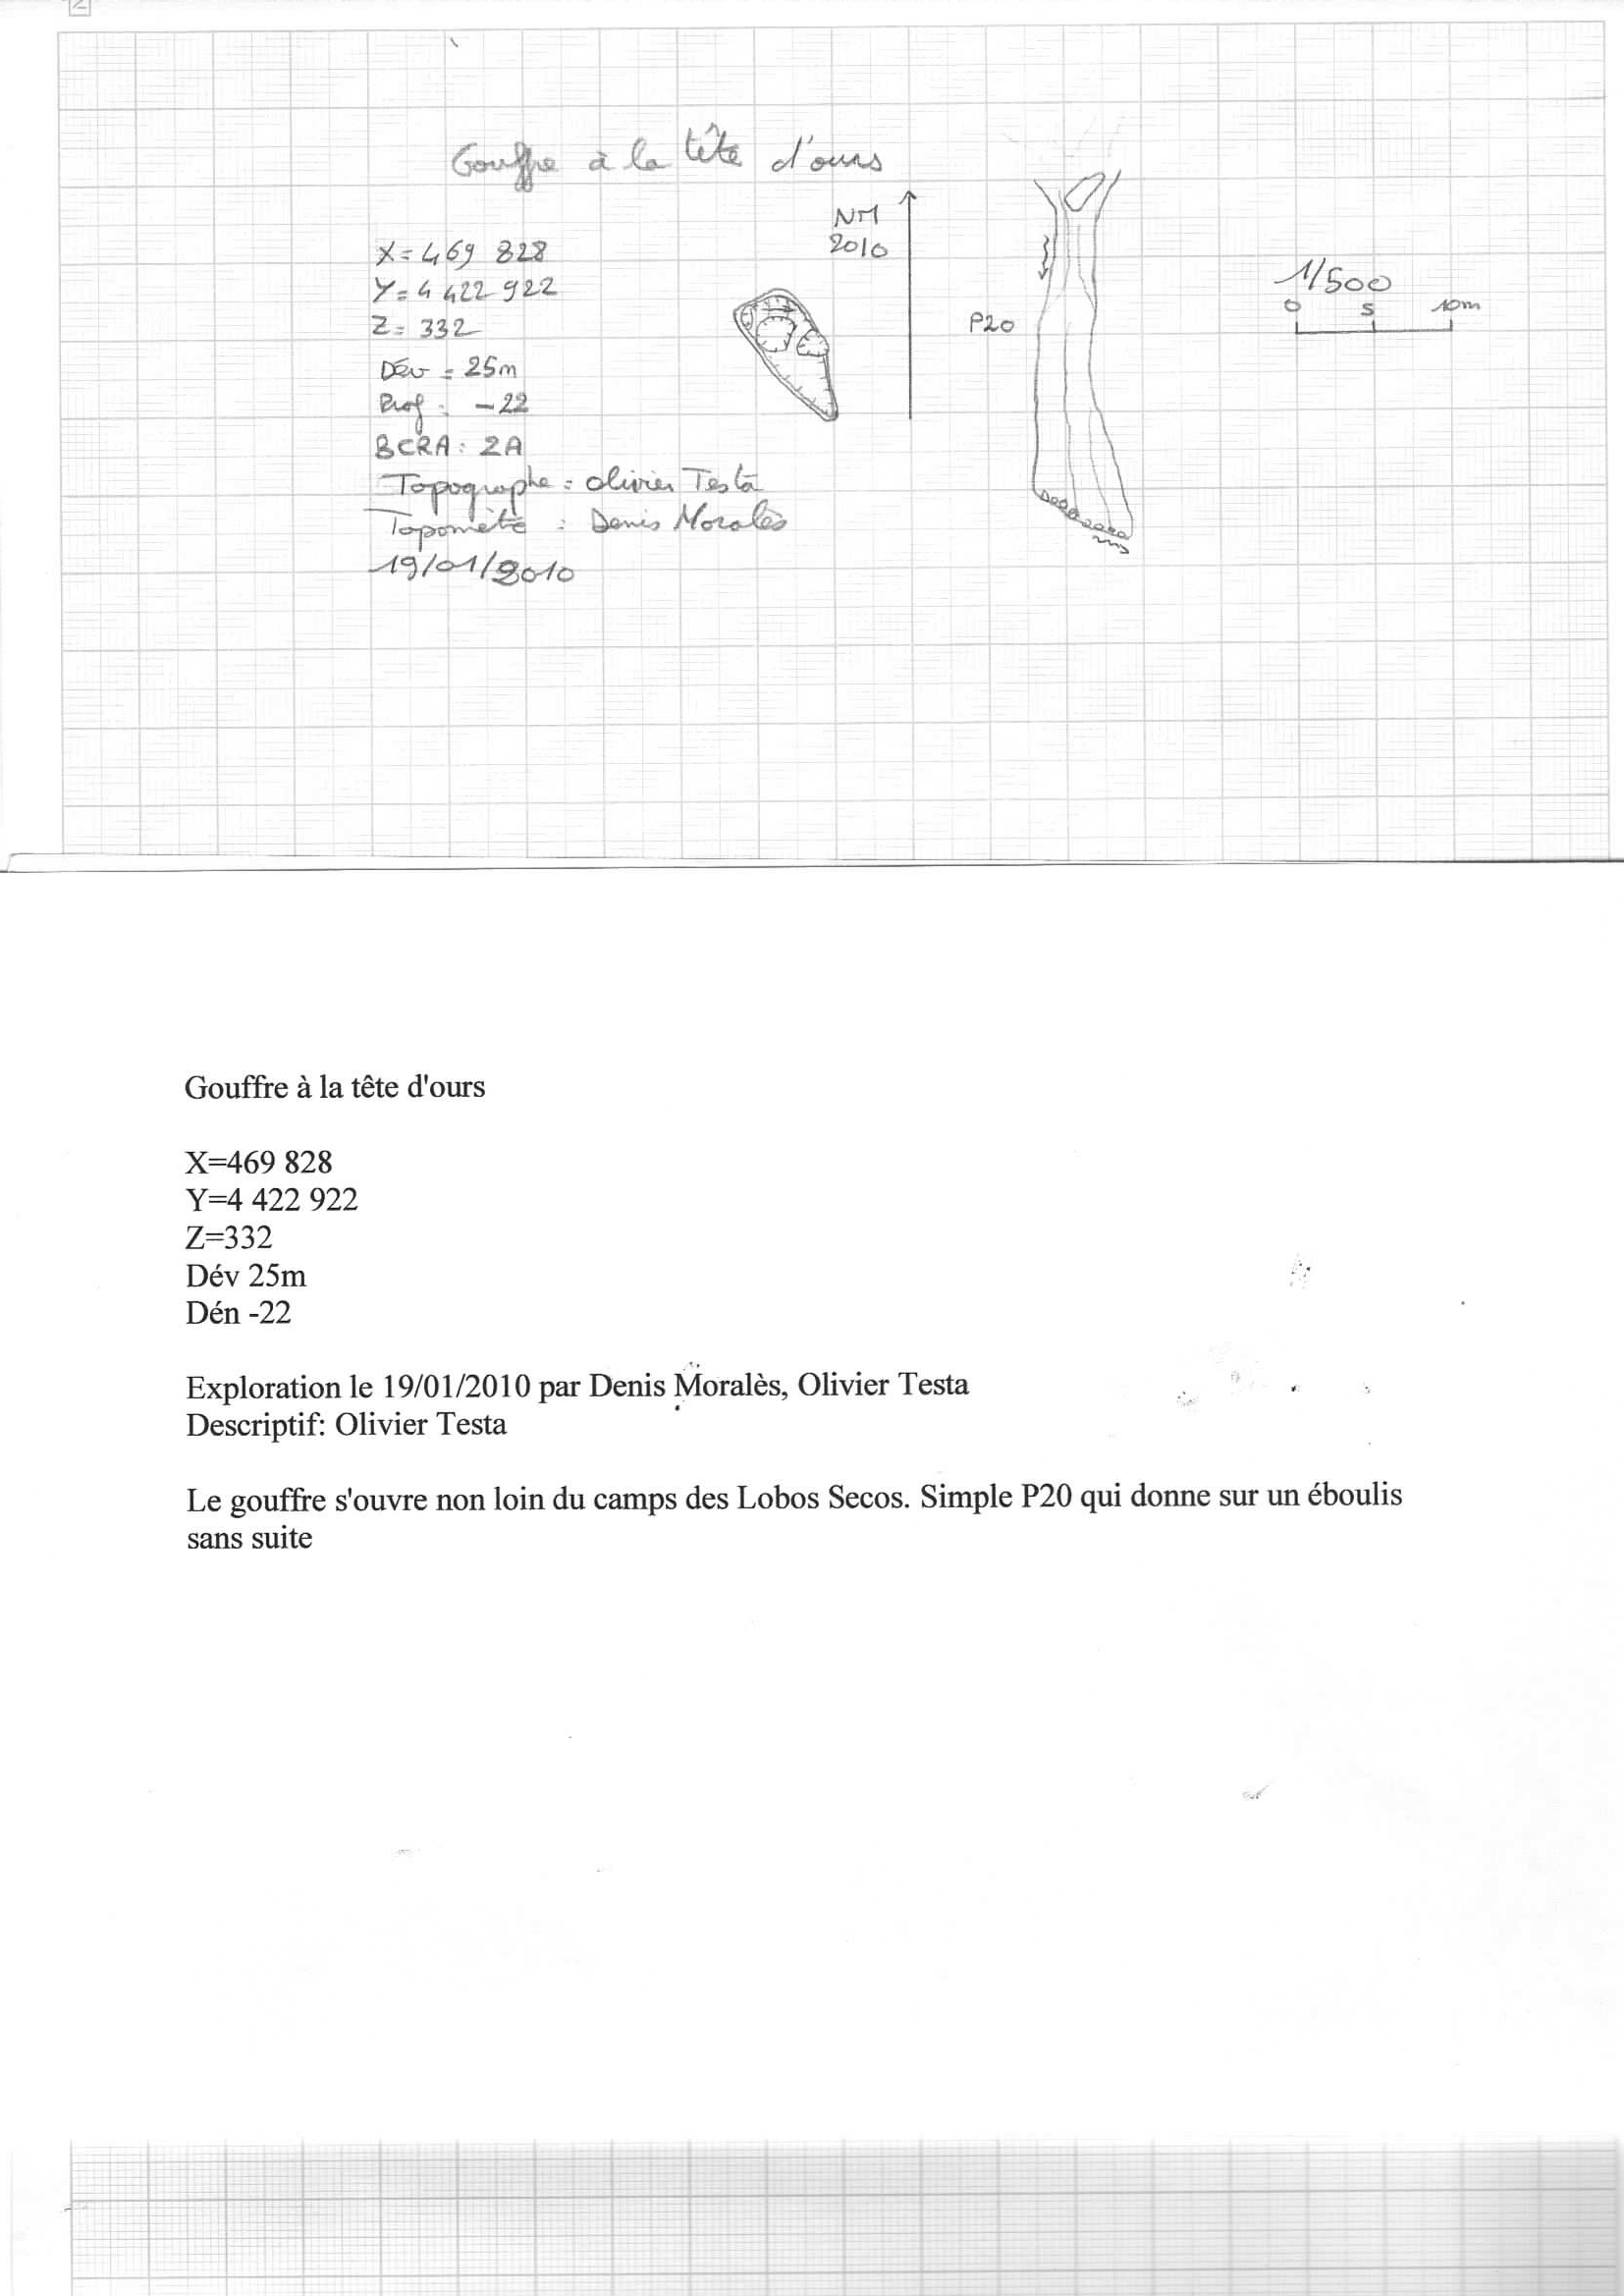 Gouffre à la tête d'ours
X=469 828
Y=4 422 922
Z=332
Dév=25m
Prof: -22
BCRA: 2A
Topographe: Olivier Testa
Topomètre: Denis Moralès
19/01/2010
NM
2010
P20
1/500
0 5 10m
Gouffre à la tête d'ours
X=469 828
Y=4 422 922
Z=332
Dév 25m
Dén -22
Exploration le 19/01/2010 par Denis Moralès, Olivier Testa
Descriptif: Olivier Testa
Le gouffre s'ouvre non loin du camps des Lobos Secos. Simple P20 qui donne sur un éboulis
sans suite